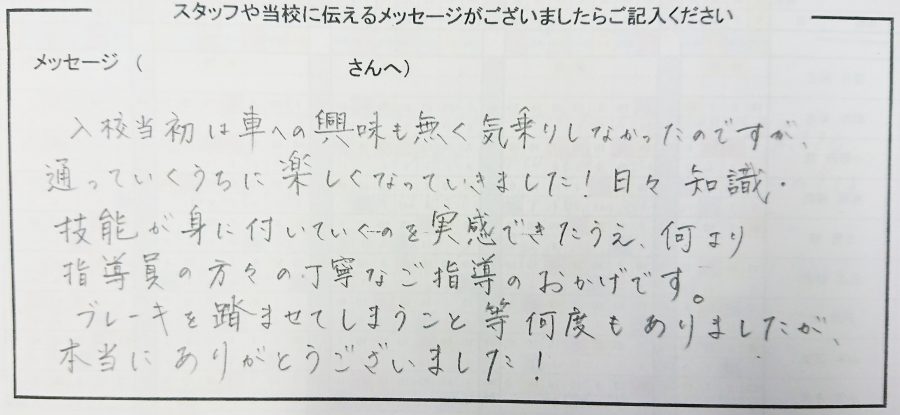 スタッフや当校に伝えるメッセージがございましたらご記入ください
メッセージ （　　　　　　　　　　さんへ）
入校当初は車への興味も無く気乗りしなかったのですが、
通っていくうちに楽しくなっていきました！日々 知識・
技能が身に付いていくのを実感できたうえ、何より
指導員の方々の丁寧なご指導のおかげです。
ブレーキを踏ませてしまうこと等何度もありましたが、
本当にありがとうございました！